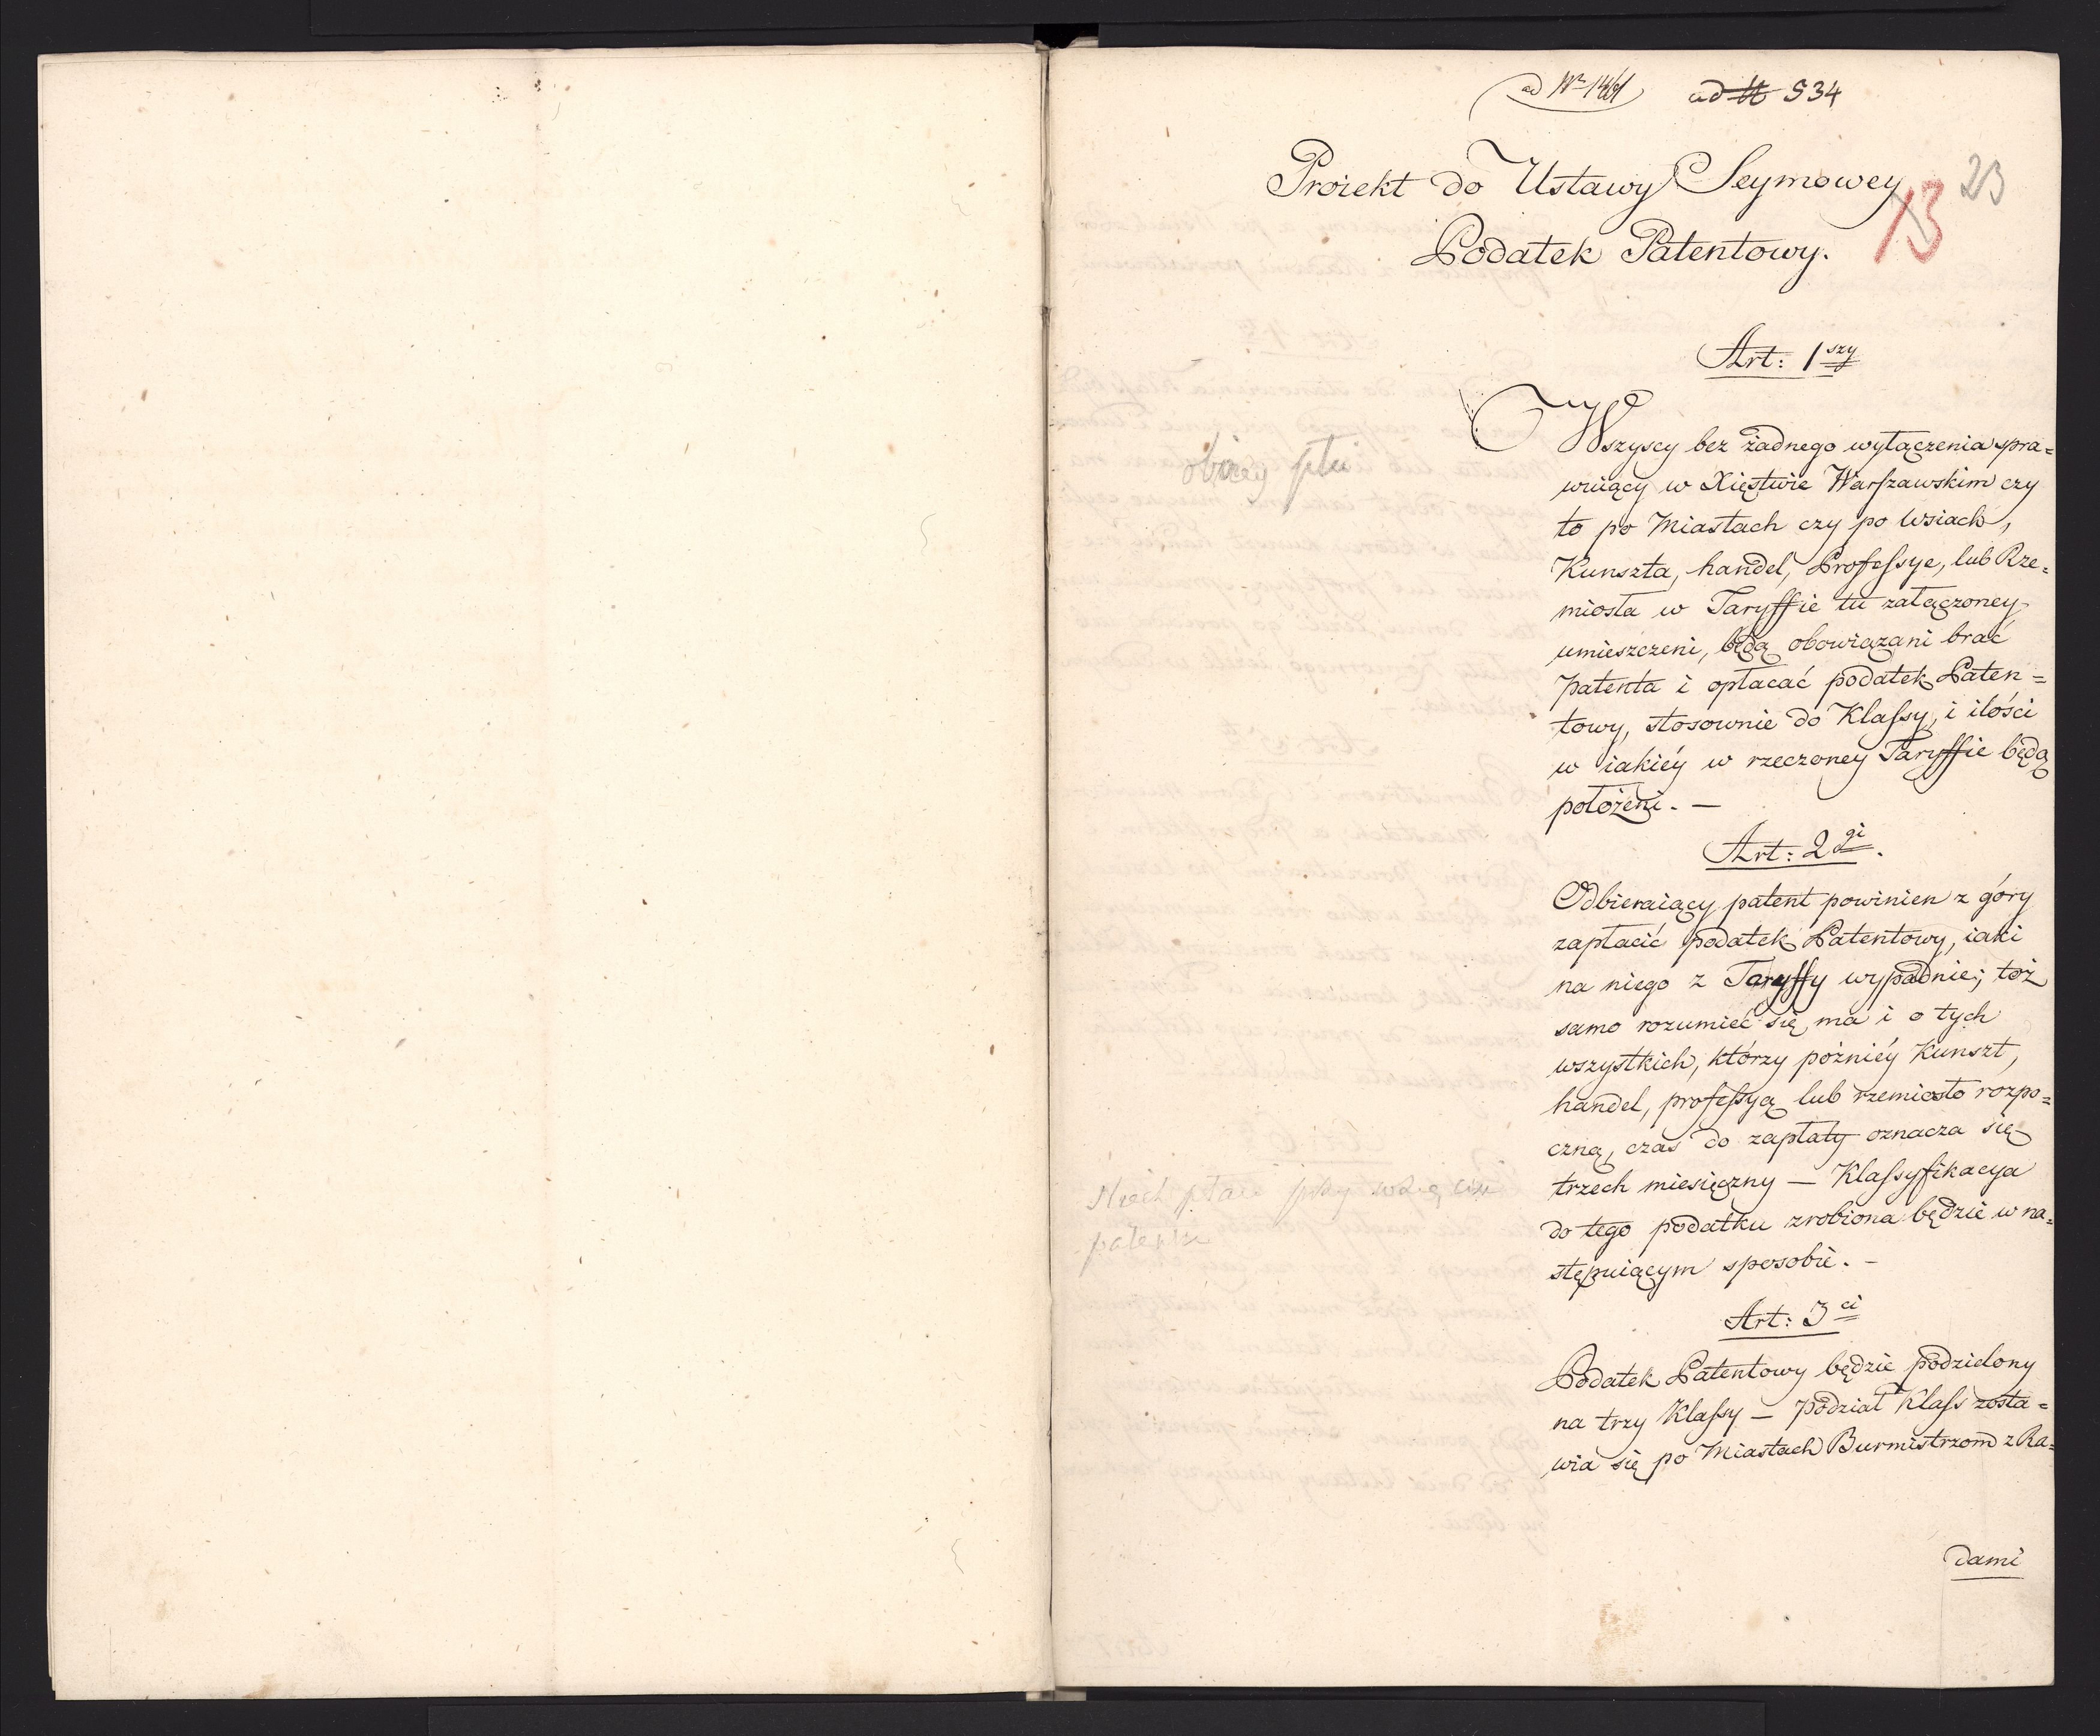 ad Nr 1461 ad 534
Proiekt do Ustawy Seymowey
23
13
Podatek Patentowy.
Art: 1szy
Wszyscy bez żadnego wyłączenia spra=
wuiący w Xięstwie Warszawskim czy
to po Miastach czy po Wsiach,
Kunszta, handel, Professye, lub Rze=
miosła w Taryffie tu załączoney
umieszczeni, będą obowiązani brać
patenta i opłacać podatek Paten=
towy, stosownie do Klassy, i ilości
w iakiéy w rzeczoney Taryffie będą
położeni. —
Art: 2gi.
Odbieraiący patent powinien z góry
zapłacić podatek Patentowy, iaki
na niego z Taryffy wypadnie; toż
samo rozumieć się ma i o tych
wszystkich, którzy poźniéy Kunszt,
handel, professyą lub rzemiosło rozpo=
czną, czas do zapłaty oznacza się
trzech miesięczny — Klassyfikacya
do tego podatku zrobiona będzie w na=
stępuiącym sposobie. —
Art: 3ci
Podatek Patentowy będzie podzielony
na trzy Klassy — podział Klass zosta=
wia się po Miastach Burmistrzom z Ra=
dami
obiey płci
Niech płaci przy wzięciu
patentu